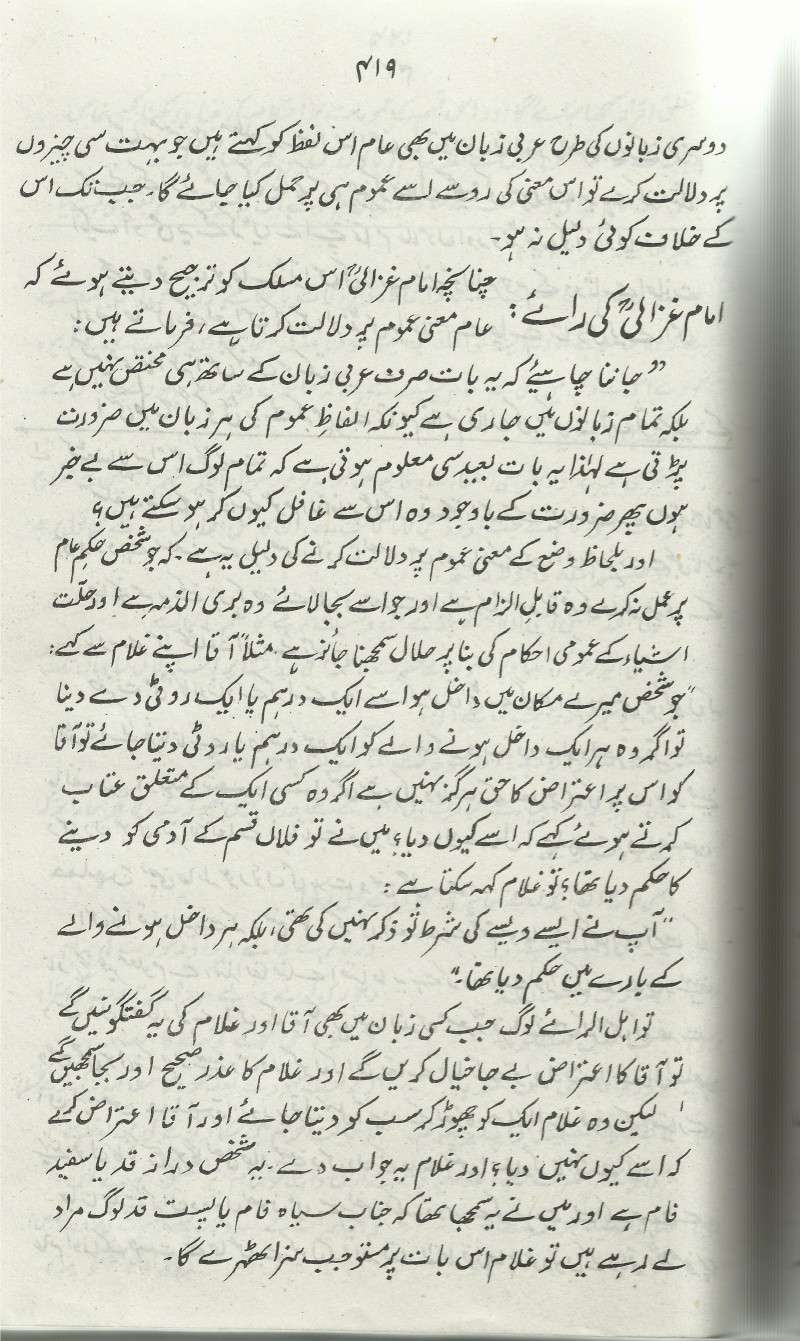 ۴۱۹
دوسری زبانوں کی طرح عربی زبان میں بھی عام اس لفظ کو کہتے ہیں جو بہت سی چیزوں
پر دلالت کرے تو اس معنی کی رو سے اسے عموم ہی پر حمل کیا جائے گا۔ جب تک اس
کے خلاف کوئی دلیل نہ ہو۔
امام غزالیؒ کی رائے: چنانچہ امام غزالیؒ اس مسلک کو ترجیح دیتے ہوئے کہ
عام معنی عموم پر دلالت کرتا ہے، فرماتے ہیں:
"جاننا چاہیئے کہ یہ بات صرف عربی زبان کے ساتھ ہی مختص نہیں ہے
بلکہ تمام زبانوں میں جاری ہے کیونکہ الفاظِ عموم کی ہر زبان میں ضرورت
پڑتی ہے لہٰذا یہ بات بعید سی معلوم ہوتی ہے کہ تمام لوگ اس سے بے خبر
ہوں پھر ضرورت کے باوجود وہ اس سے غافل کیوں کر ہو سکتے ہیں؟
اور بلحاظ وضع کے معنی عموم پر دلالت کرنے کی دلیل یہ ہے۔ کہ جو شخص حکمِ عام
پر عمل نہ کرے وہ قابلِ الزام ہے اور جو اسے بجا لائے وہ بری الذمہ ہے اور حلّت
اشیاء کے عمومی احکام کی بنا پر حلال سمجھنا جائز ہے۔ مثلاً آقا اپنے غلام سے کہے:
"جو شخص میرے مکان میں داخل ہو اسے ایک درہم یا ایک روٹی دے دینا
تو اگر وہ ہر ایک داخل ہونے والے کو ایک درہم یا روٹی دیتا جائے تو آقا
کو اس پر اعتراض کا حق ہرگز نہیں ہے اگر وہ کسی ایک کے متعلق عتاب
کرتے ہوئے کہے کہ اسے کیوں دیا؟ میں نے تو فلاں قسم کے آدمی کو دینے
کا حکم دیا تھا؟ تو غلام کہہ سکتا ہے:
"آپ نے ایسے ویسے کی شرط تو ذکر نہیں کی تھی، بلکہ ہر داخل ہونے والے
کے بارے میں حکم دیا تھا۔"
تو اہل الرائے لوگ جب کسی زبان میں بھی آقا اور غلام کی یہ گفتگو سنیں گے
تو آقا کا اعتراض بے جا خیال کریں گے اور غلام کا عذر صحیح اور بجا سمجھیں گے
لیکن وہ غلام ایک کو چھوڑ کر سب کو دیتا جائے اور آقا اعتراض کرے
کہ اسے کیوں نہیں دیا؟ اور غلام یہ جواب دے۔ یہ شخص دراز قد یا سفید
فام ہے اور میں نے یہ سمجھا تھا کہ جناب سیاہ فام یا پست قد لوگ مراد
لے رہے ہیں تو غلام اس بات پر مستوجب سزا ٹھہرے گا۔